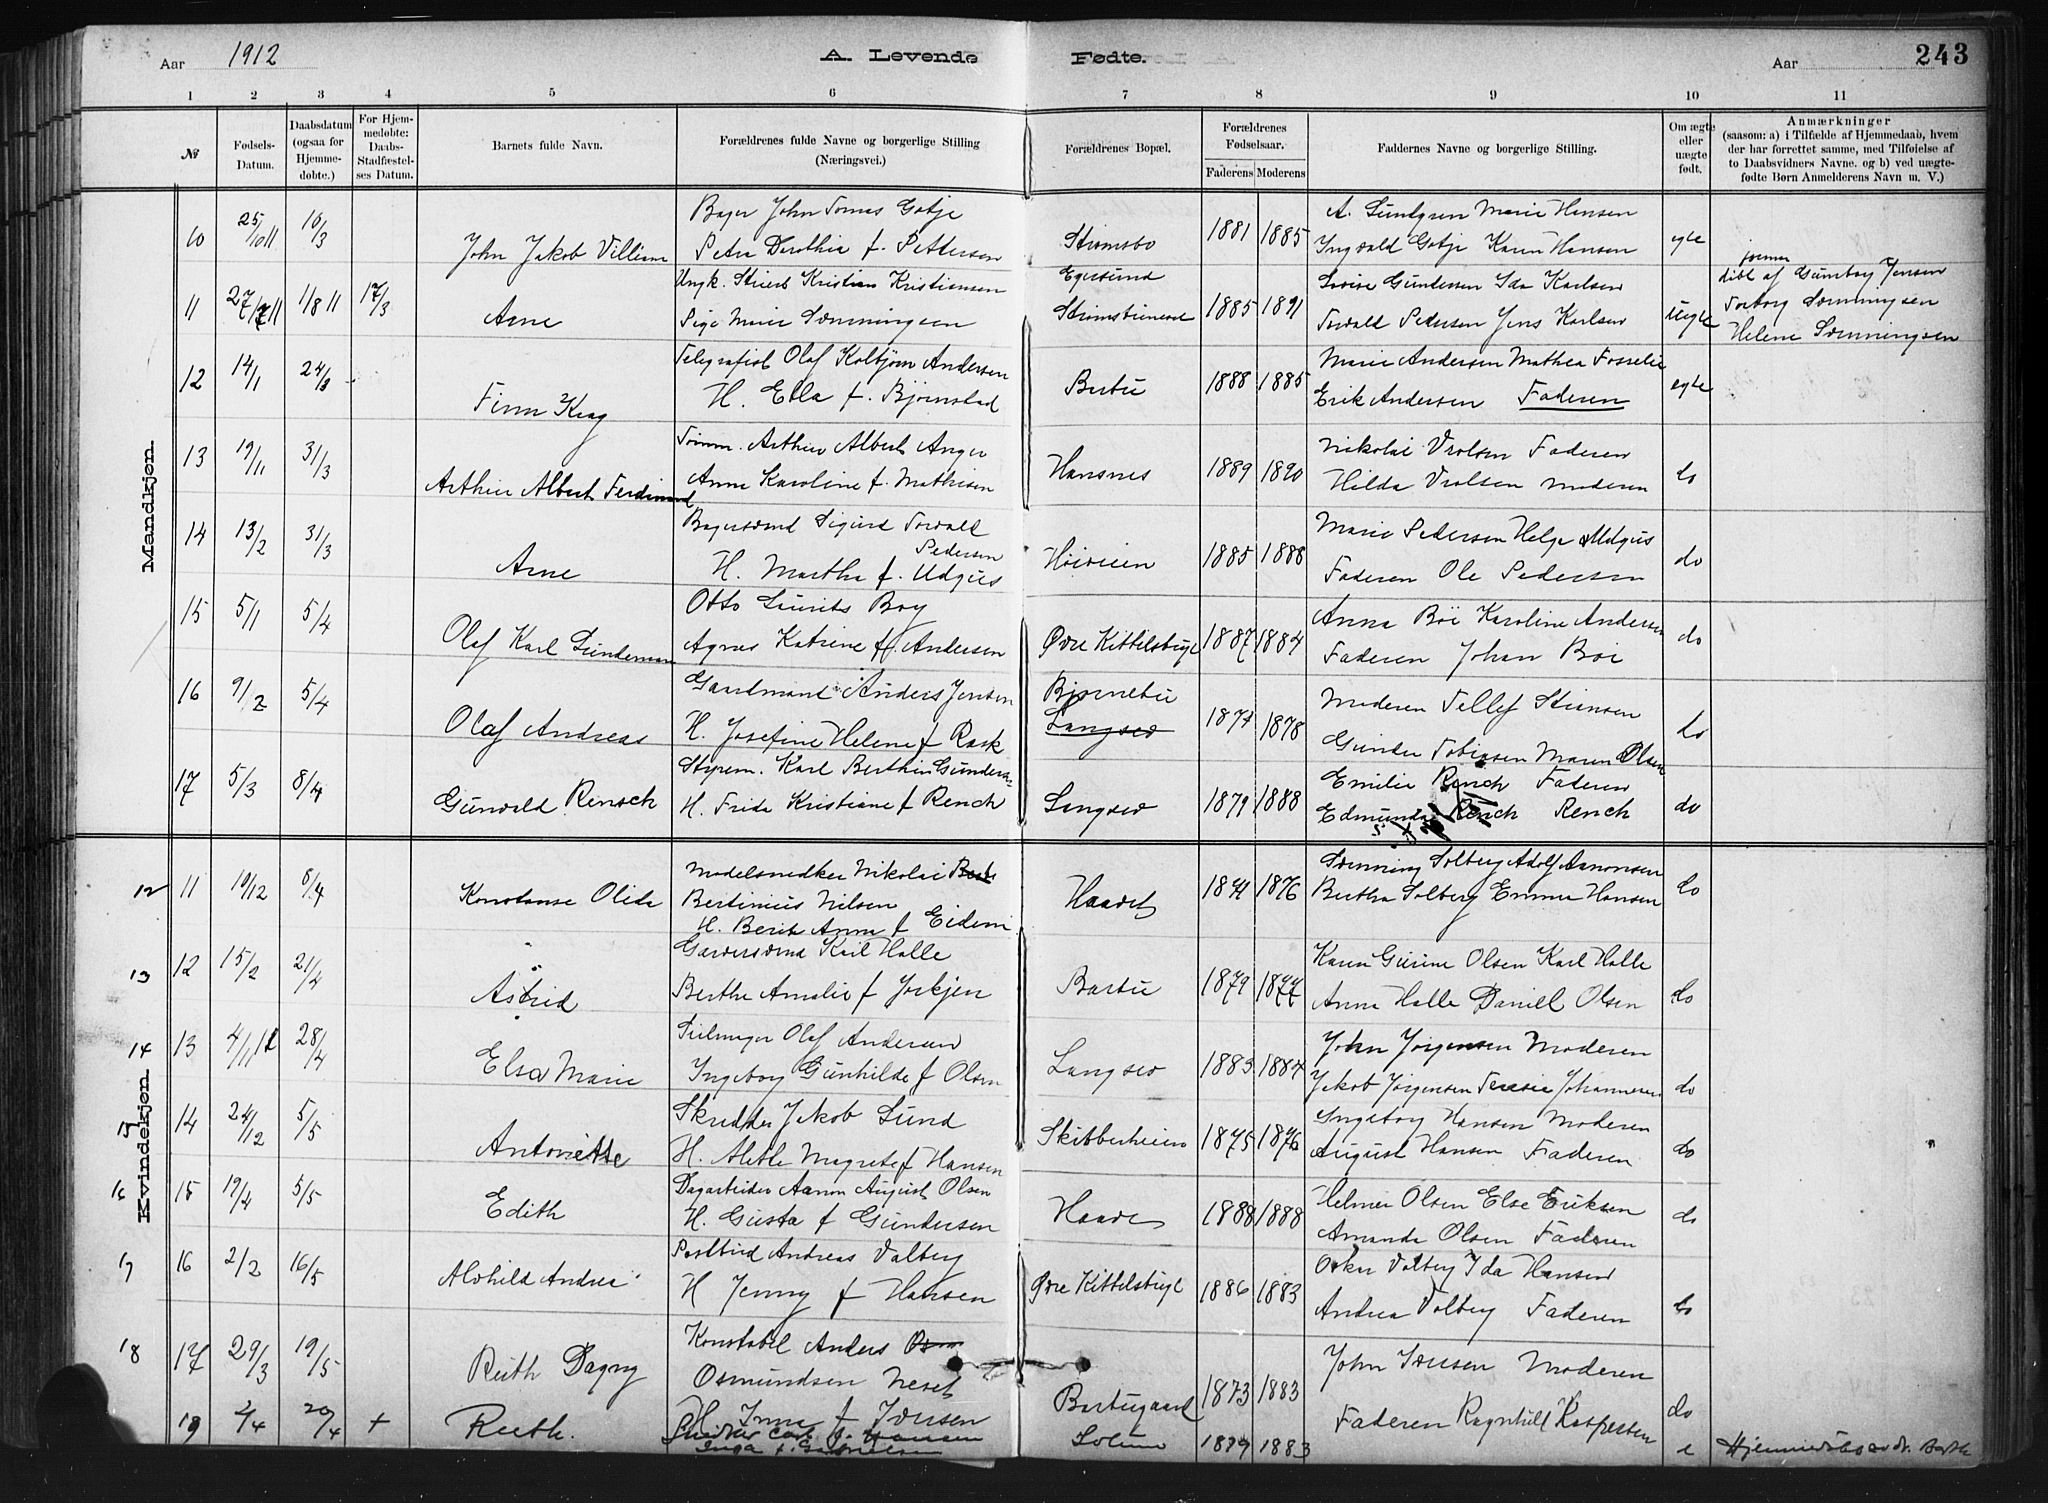 Aar 1912
A. Levende Fødte.
Aar 243
1 2 3 4 5 6 7 8 9 10 11
№ Fødsels-Datum. Daabsdatum (ogsaa for Hjemmedøbte.) For Hjemmedøbte: Daabs-Stadfæstelses Datum. Barnets fulde Navn. Forældrenes fulde Navne og borgerlige Stilling (Næringsvei.) Forældrenes Bopæl. Forældrenes Fødselsaar. Faderens Moderens Faddernes Navne og borgerlige Stilling. Om ægte eller uægte født. Anmærkninger (saasom: a) i Tilfælde af Hjemmedaab, hvem der har forrettet samme, med Tilføielse af to Daabsvidners Navne. og b) ved uægtefødte Børn Anmelderens Navn m. V.)
Mandkjøn.
Bager John Tomas Gotje A. Lundgren Marie Hansen
10 25/10 11 10/3 John Jakob Villiam Petra Dorothia f. Pettersen Strømsbo 1881 1885 Ingvald Gotje Karen Hansen egte
Ungk. Kristian Kristiansen Egersund Gundersen Ida Karlsen
11 11 1/8 11 17/3 Arne Pige Marie Lønningsen 1885 1891 Torvald Pedersen Jens Karlsen uegte
Helene Lønningsen
Telegrafist Olaf Kolbjørn Andersen Marie Andersen Mathea Fosselie
12 14/1 24/3 Finn Krag H. Ella f. Bjørnstad Barbu 1888 1885 Erik Andersen Faderen egte
Tømm. Arthur Albert Anger Nikolai Vrolsen Faderen
13 19/11 31/3 Arthur Albert Ferdinand Anna Karoline f. Mathisen Hansnes 1889 1890 Hilda Vrolsen Moderen do
Bagersvend Sigurd Torvald Pedersen Marie Pedersen Helge Udgus
14 13/2 31/3 Arne H. Martha f. Udgus Høiveien 1885 1888 Faderen Ole Pedersen do
Otto Lurits Boy Anna Böi Karoline Andersen
15 5/1 5/4 Olaf Karl Lindeman Agnes Katrine f. Andersen Øvre Kittelsbugt 1887 1884 Faderen Johan Boi do
Gaardmand Anders Jensen Bjørnebu Moderen Tellef Stiansen
16 9/2 5/4 Olaf Andreas H. Josefine Helene f Rask Langsev 1874 1878 Gunder Tobiasen Maren Olsen do
Styrem. Karl Berthin Gundersen Emilie Rench Faderen
17 5/3 8/4 Gunvald Rensch H. Frida Kristiane f Rench Langsev 1879 1888 Edmunda Rench Rench do
Kvindekjøn.
Møbelsnedker Nikolai Lønning Solberg Adolf Aanonsen
12 11 19/12 8/4 Konstanse Olida Bertinius Nilsen Haavet 1871 1876 Bertha Solberg Emma Hansen do
H. Berit Anna f Eidem
Garversvend Karl Halle Karen Gurine Olsen Karl Halle
13 12 15/2 21/4 Astrid Berthe Amalie f Jorkjen Barbu 1879 1877 Anna Halle Daniel Olsen do
Seilmager Olaf Andersen John Jørgensen Moderen
14 13 4/11 11 28/4 Elsa Marie Ingeborg Gunhilde f Olsen Langsev 1883 1884 Jakob Jørgensen Teresie Johannesen do
Skredder Jakob Lund Ingeborg Hansen Moderen
15 14 24/12 5/5 Antoniette H. Alette Magrete f Hansen Skibberheien 1875 1876 August Hansen Faderen do
Dagarbeider Aanon August Olsen Helmer Olsen Else Eriksen
16 15 19/4 5/5 Edith H. Gusta f Gundersen Haavet 1888 1888 Amanda Olsen Faderen do
Postbud Andreas Valberg Oskar Valberg Ida Hansen
17 16 2/2 16/5 Alvhild Andrea H Jenny f Hansen Øvre Kittelsbugt 1886 1883 Andrea Valberg Faderen do
Konstabel Anders John Iversen Moderen
18 17 29/3 19/5 Ruth Dagny Osmundsen Neset Barbugaard 1873 1883 Faderen Ragnhild Kaspersen do
H. Inna f Iversen
18 2/4 20/4 + Ruth. Inga f. Gabrielsen Solum 1879 1883 e Hjemmedøbt av dr.